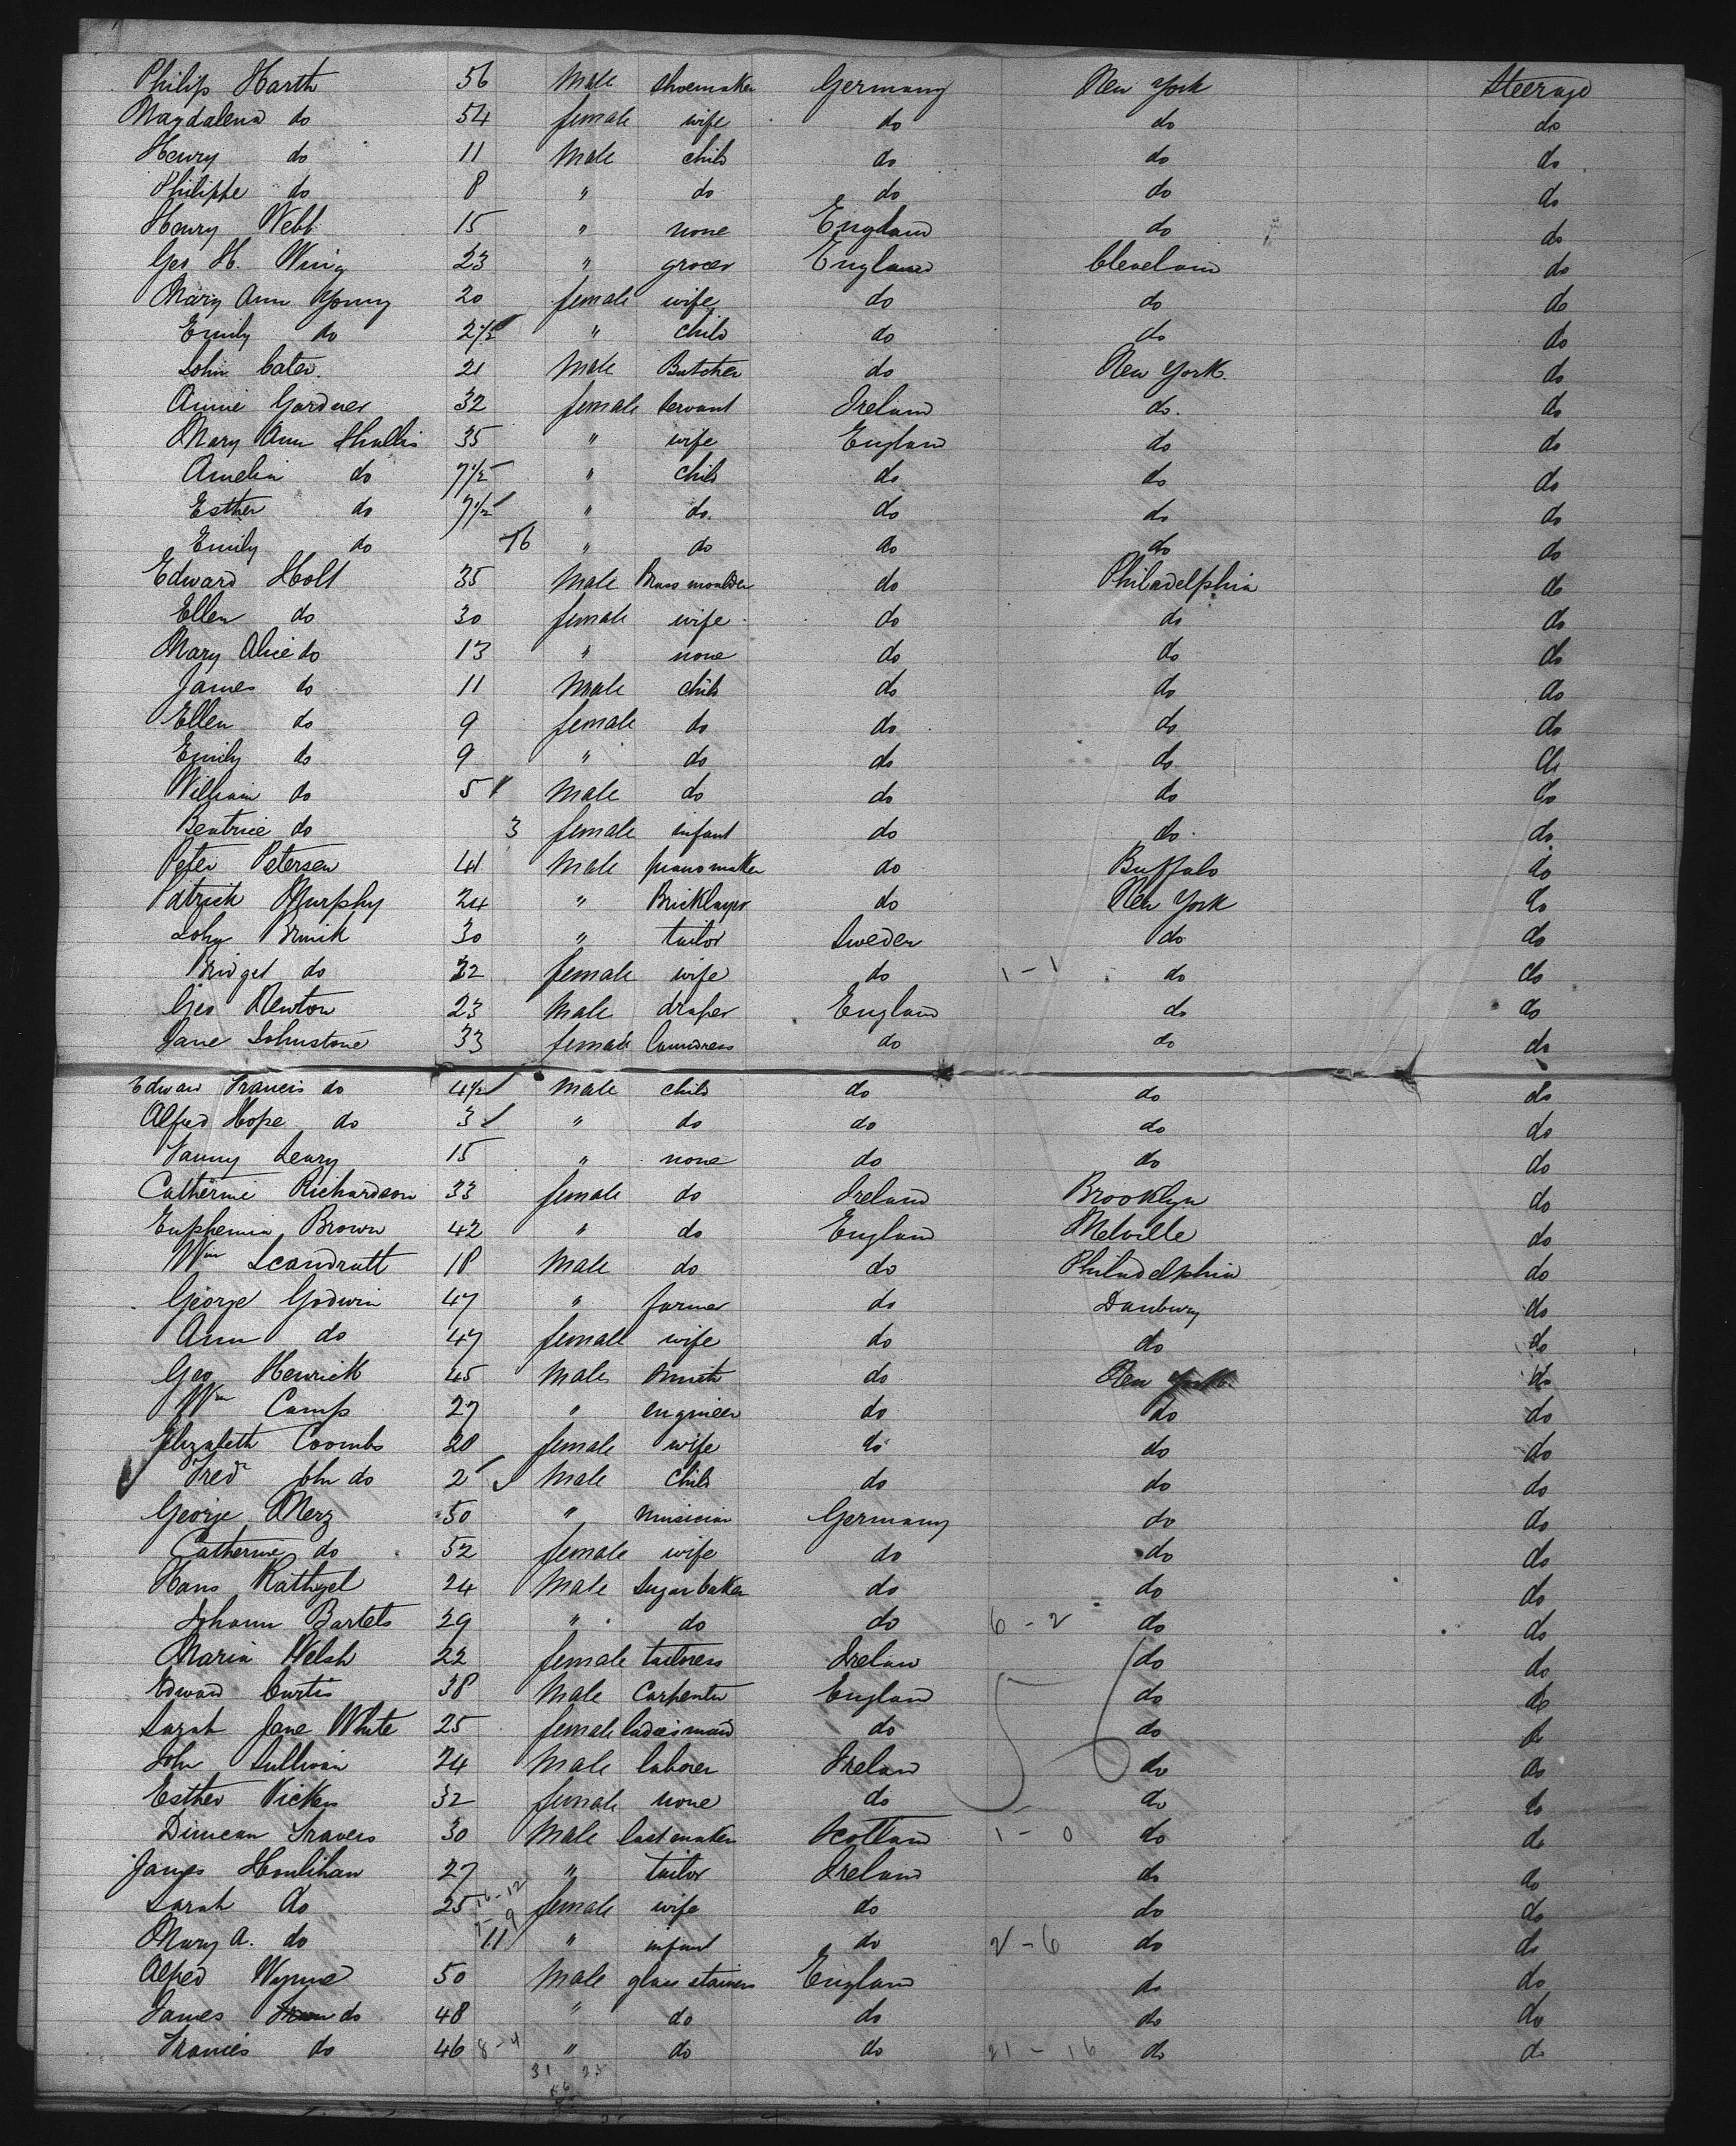 Philip Harth 56 Male shoemaker Germany New York Steerage
Magdalena do 54 female wife do do do
Henry do 11 Male child do do do
Philippe do 8 " do do do do
Henry Webb 15 " none England do do
Geo H. Wing 23 " grocer England Cleveland do
Mary Ann Young 20 female wife do do do
Emily do 2½ " child do do do
John Cater. 21 Male Butcher do New York. do
Annie Gardner 32 female servant Ireland do. do
Mary Ann 35 " wife England do do
Amelia do 7½ " child do do do
Esther do 7½ " do. do do do
Emily do 76 " do do do do
Edward Holt 35 Male Brass moulder do Philadelphia do
Ellen do 30 female wife do do do
Mary Alice do 13 " none do do do
James do 11 Male child do do do
Ellen do 9 female do do do do
Emily do 9 " do do do do
William do 5 Male do do do do
Beatrice do 3 female infant do do do
Peter Petersen 41 Male pianomaker do Buffalo do
Patrick Murphy 24 " Bricklayer do New York do
John 30 " tailor Sweden do do
Bridget do 32 female wife do 1-1 do do
Geo Newton 23 Male draper England do do
Jane Johnstone 33 female laundress do do do
Edward Francis do 4½ Male child do do do
Alfred Hope do 3 " do do do do
Fanny Leary 15 " none do do do
Catherine Richardson 33 female do Ireland Brooklyn do
Euphemia Brown 42 " do England Melville do
Wm Scandrett 18 Male do do Philadelphia do
George Godwin 47 " farmer do Danbury do
Ann do 47 female wife do do do
Geo Henrick 45 Male Smith do New York. do
Wm Camp 27 " engineer do do do
Elizabeth Coombs 20 female wife do do do
Fredk John do 2 Male child do do do
George Merz 50 " musician Germany do do
Catherine do 52 female wife do do do
Hans Rathgel 24 Male Sugar baker do do do
Johann Bartels 29 " do do 6-2 do do
Maria Welsh 22 female tailoress Ireland do do
Edward Curtis 38 Male Carpenter England do do
Sarah Jane White 25 female ladiesmaid do do do
John Sullivan 24 Male laborer Ireland do do
Esther Vickers 32 female none do do do
Duncan Travers 30 Male lastmaker Scotland 1-0 do do
James Houlihan 27 " tailor Ireland do do
Sarah do 25 16-12 female wife do do do
Mary A. do 11 " infant do 2-6 do do
Alfred Wynne 50 Male glass stainers England do do
James do 48 " do do do do
Francis do 46 8-4 " do do 21-16 do do
31 25